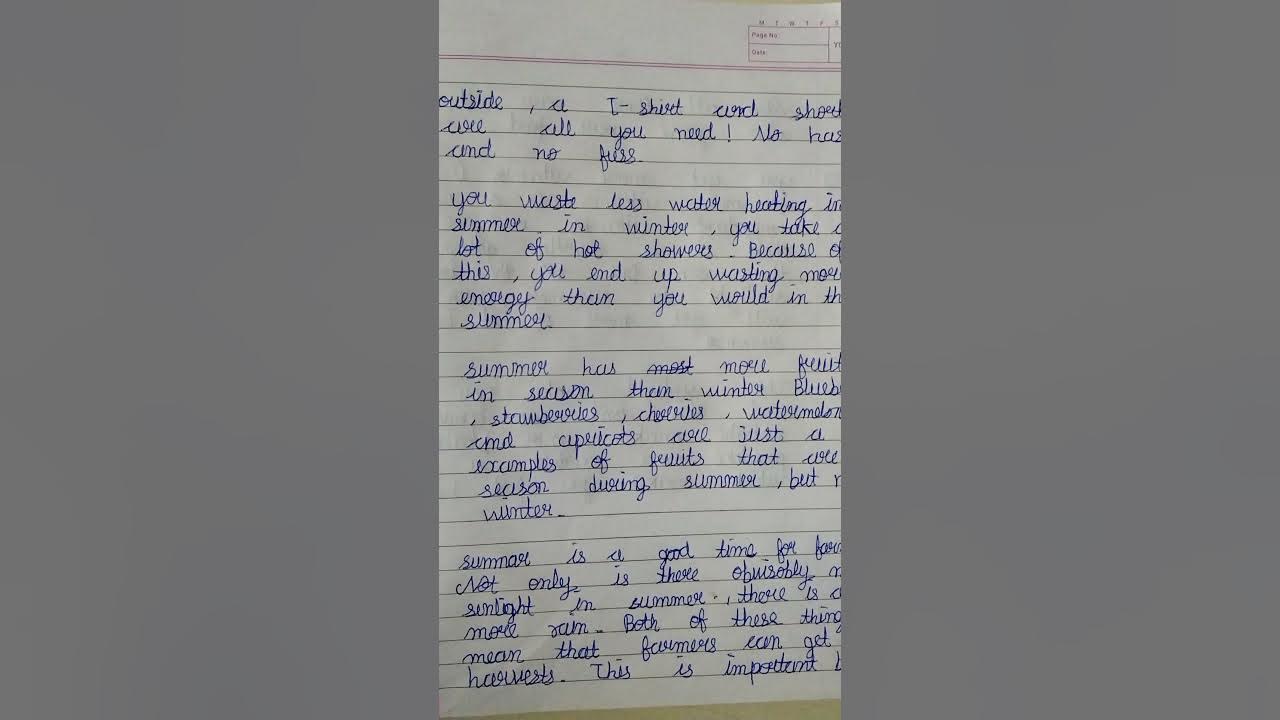 M T W T F S
Page No.:
Date:
YO
outside , a T-shirt and short
are all you need! No has
and no fuss.
you waste less water heating in
summer. in winter , you take a
lot of hot showers. Because of
this , you end up wasting more
energy than you would in th
summer.
summer has most more fruit
in season than winter Blueb
, stawberries , cherries , watermelon
and apricots are just a
examples of fruits that are
season during summer , but n
winter.
sumnar is a good time for farm
Not only is there obuisobly m
sunlight in summer. , there is a
more rain. Both of these thing
mean that farmers can get
harvests. This is important b